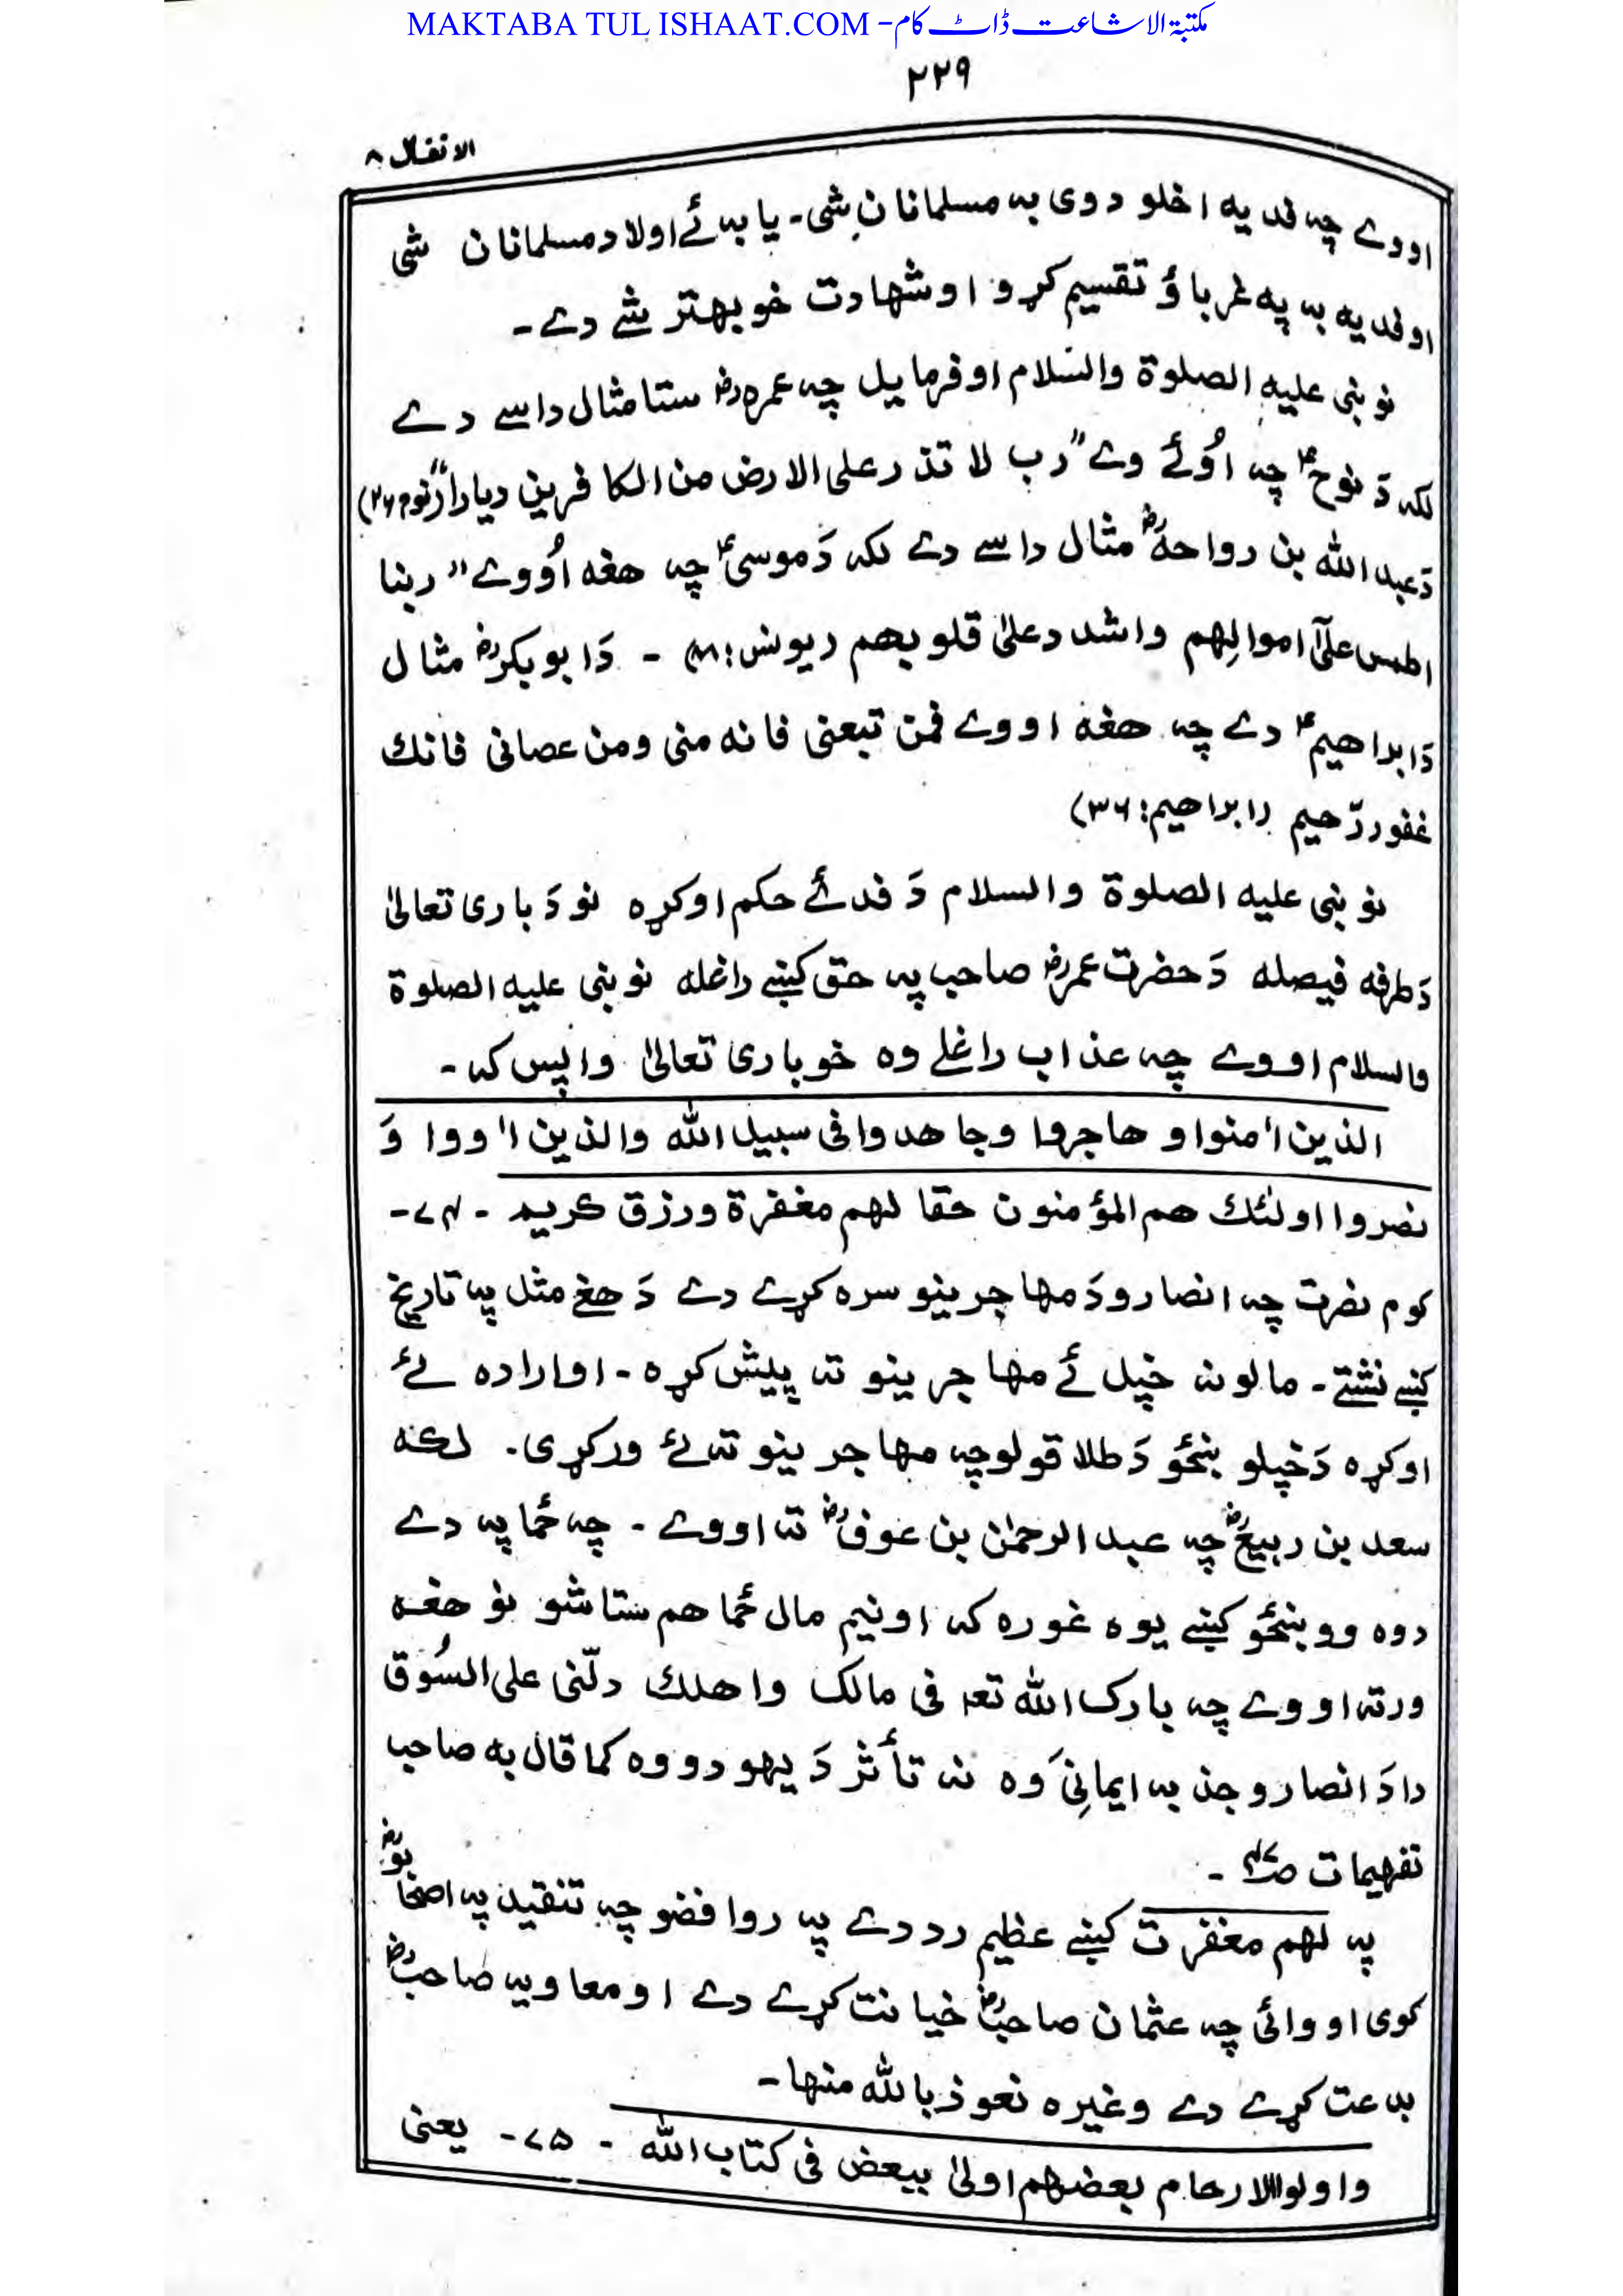 MAKTABA TUL ISHAAT.COM -مکتبۃ الاشاعت ڈاٹ کام
۲۲۹
الانفال ۸
اووے چہ فدیہ اخلو دوی بہ مسلمانان شی۔ یا بہ ئے اولاد مسلمانان شی
اوفدیہ بہ پہ غرباؤ تقسیم کړو اوشھادت خو بھتر شے دے۔
نو نبی علیہ الصلوۃ والسلام اوفرمایل چہ عمرہ رض ستا مثال داسے دے
لکہ دَ نوحؑ چہ اوُئے وے "رب لا تذر علی الارض من الکافرین دیارا" (نوح ۲۶)
دَعبداللہ بن رواحہؓ مثال داسے دے لکہ دَموسیٰؑ چہ ھغہ اوُوے "ربنا
اطمس علیٰٓ اموالِھم واشدد علیٰ قلوبھم (یونس:۸۸) ۔ دَابوبکرؓ مثال
دَابراھیمؑ دے چہ ھغہ اووے فمن تبعنی فانہ منی ومن عصانی فانك
غفور رّحیم (ابراھیم:۳۶)
نو نبی علیہ الصلوۃ والسلام دَ فدئے حکم اوکړہ نو دَ باری تعالیٰ
دَطرفہ فیصلہ دَحضرت عمرؓ صاحب پہ حق کښے راغلہ نو نبی علیہ الصلوۃ
والسلام اووے چہ عذاب راغلے وہ خو باری تعالیٰ واپس کہ۔
الذین اٰمنوا و ھاجروا وجاھدوا فی سبیل اللہ والذین اٰووا وَ
نصروا اولئك ھم المؤمنون حقا لھم مغفرۃ ورزق کریم ۔ ۷۴۔
کوم نصرت چہ انصارو دَمھاجرینو سرہ کړے دے دَ ھغے مثل پہ تاریخ
کښے نشتے۔ مالونہ خپل ئے مھاجرینو تہ پیش کړہ ۔ اوارادہ ئے
اوکړہ دَخپلو ښځو دَ طلاقولو چہ مھاجرینو تہ ئے ورکړی۔ لکہ
سعد بن ربیعؓ چہ عبد الرحمٰن بن عوفؓ تہ اووے ۔ چہ ځما پہ دے
دوہ وو ښځو کښے یوہ غورہ کہ او نیم مال ځما ھم ستا شو نو ھغہ
ورتہ اووے چہ بارک اللہ تعہ فی مالک واھلك دلّنی علی السُوق
دا دَ انصارو جذبہ ایمانِی وہ نہ تأثر دَ یھودو وہ کما قال بہ صاحب
تفھیمات ۔
پہ لھم مغفرت کښے عظیم رد دے پہ روافضو چہ تنقید پہ اصحابوؓ
کوی او وائی چہ عثمان صاحبؓ خیانت کړے دے او معاویہ صاحبؓ
بدعت کړے دے وغیرہ نعوذ باللہ منھا۔
واولوالارحام بعضھم اولیٰ ببعض فی کتاب اللہ ۔ ۷۵۔ یعنی